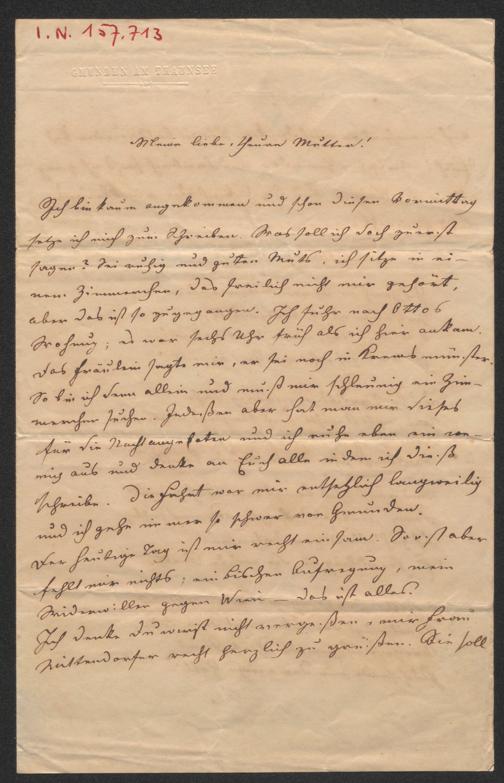 I.N. 157.713
GMUNDEN AM TRAUNSEE
Meine liebe, theure Mutter!
Ich bin kaum angekommen und schon diesen Vormittag
setze ich mich zum Schreiben. Was soll ich doch zuerst
sagen? Sei ruhig und guten Muts, ich sitze in ei-
nem Zimmerchen, das freilich nicht mir gehört,
aber das ist so zugegangen. Ich fuhr nach Ottos
Wohnung; es war sechs Uhr früh als ich hier ankam.
Das Fräulein sagte mir, er sei noch in Kremsmünster.
So bin ich denn allein und muß mir schleunig ein Zim-
merchen suchen. Indeßen aber hat man mir dieses
für die Nacht angeboten und ich ruhe eben ein we-
nig aus und denke an Euch alle indem ich dieß
schreibe. Die Fahrt war mir entsetzlich langweilig
und ich gehe immer so schwer von Gmunden.
Der heutige Tag ist mir recht einsam. Sonst aber
fehlt mir nichts; ein bischen Aufregung, mein
Widerwillen gegen Wien – das ist alles.
Ich denke du wirst nicht vergeßen, mir Frau
Mittendorfer recht herzlich zu grüßen. Sie soll